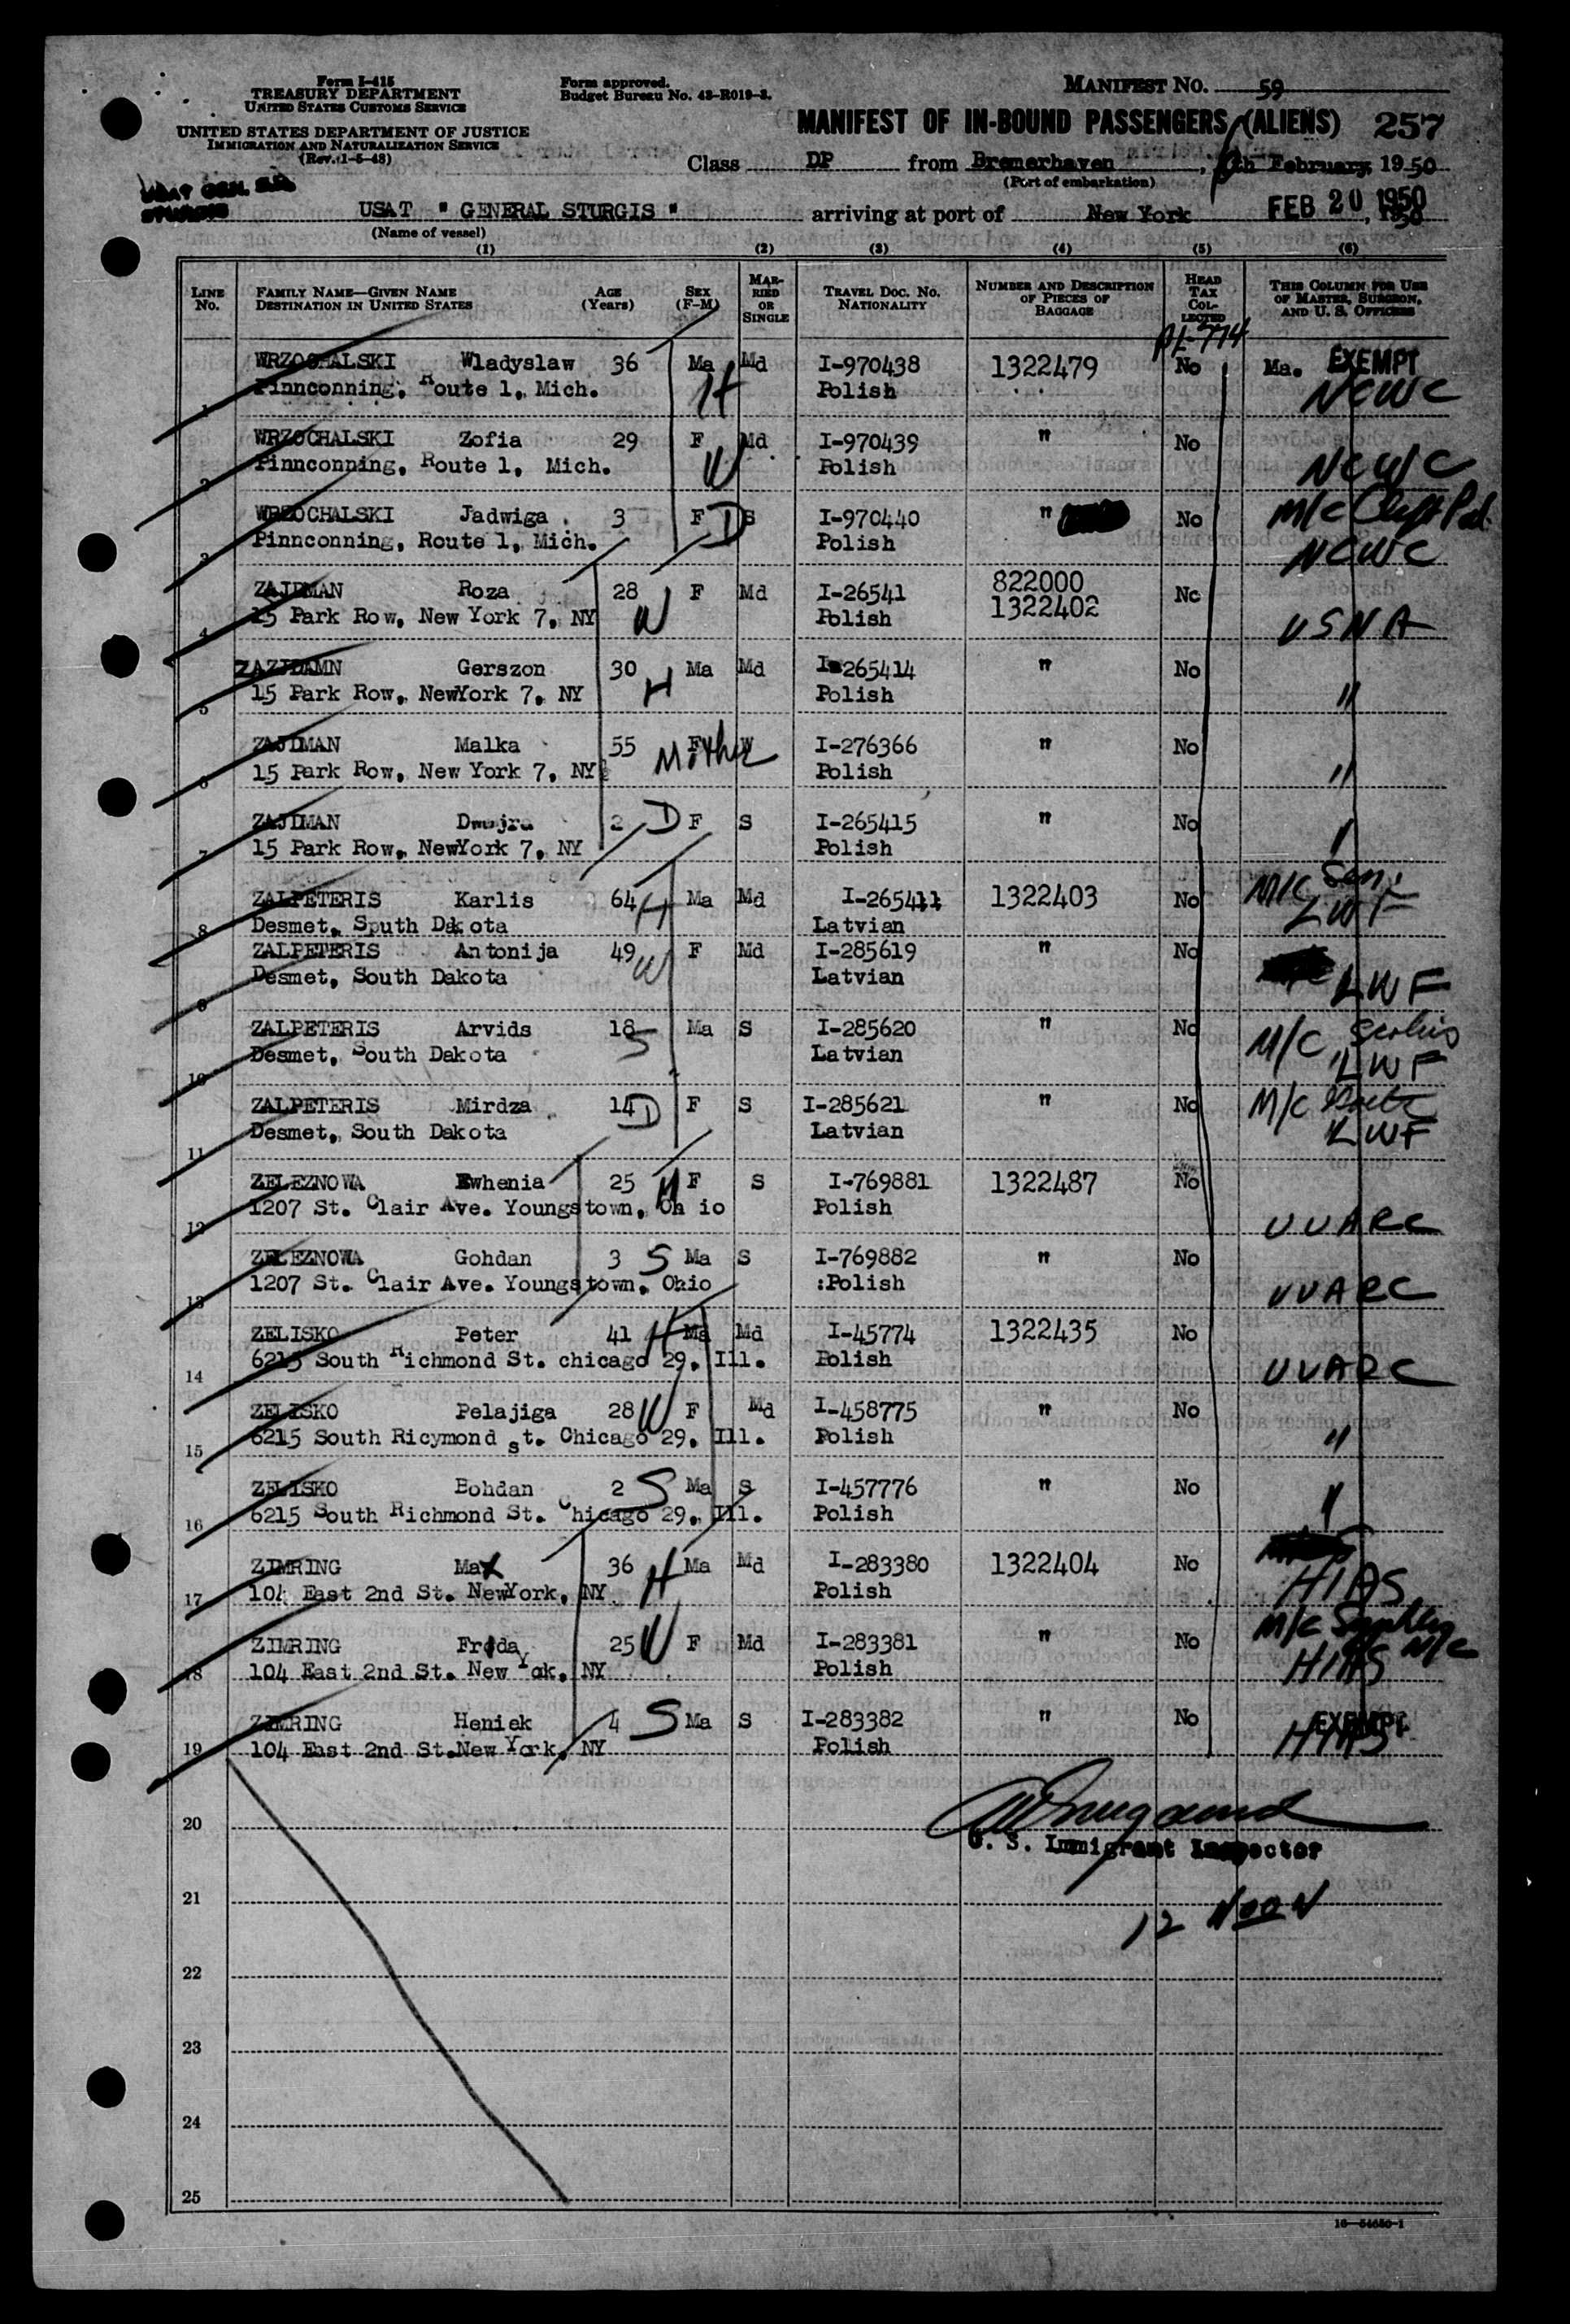 Form I-415
TREASURY DEPARTMENT
UNITED STATES CUSTOMS SERVICE
UNITED STATES DEPARTMENT OF JUSTICE
IMMIGRATION AND NATURALIZATION SERVICE
(Rev. 1-5-48)
Form approved.
Budget Bureau No. 43-R019-3.
MANIFEST NO. 59
MANIFEST OF IN-BOUND PASSENGERS (ALIENS) 257
Class DP from Bremerhaven, th February, 1950
(Port of embarkation)
USAT GEN. S.D.
STURGIS
USAT " GENERAL STURGIS " arriving at port of New York FEB 20 1950, 1950
(Name of vessel)
(1) (2) (3) (4) (5) (6)
LINE No. FAMILY NAME—GIVEN NAME DESTINATION IN UNITED STATES AGE (Years) SEX (F-M) MARRIED OR SINGLE TRAVEL DOC. NO. NATIONALITY NUMBER AND DESCRIPTION OF PIECES OF BAGGAGE HEAD TAX COLLECTED THIS COLUMN FOR USE OF MASTER, SURGEON, AND U. S. OFFICERS
PL-774
WRZOCHALSKI Wladyslaw 36 Ma Md I-970438 1322479 No Ma. EXEMPT
1 Pinnconning, Route 1, Mich. H Polish NCWC
WRZOCHALSKI Zofia 29 F Md I-970439 " No
2 Pinnconning, Route 1, Mich. W Polish NCWC
WRZOCHALSKI Jadwiga 3 F D S I-970440 " No M/C
3 Pinnconning, Route 1, Mich. Polish NCWC
ZAJDMAN Roza 28 F Md I-26541 822000 No
4 15 Park Row, New York 7, NY W Polish 1322402 USNA
ZAZJDAMN Gerszon 30 Ma Md I-265414 " No
5 15 Park Row, NewYork 7, NY H Polish "
ZAJDMAN Malka 55 F Mother W I-276366 " No
6 15 Park Row, New York 7, NY Polish "
ZAJDMAN Dwojra 2 D F S I-265415 " No
7 15 Park Row, NewYork 7, NY Polish "
ZALPETERIS Karlis 64 H Ma Md I-265411 1322403 No M/C
8 Desmet, South Dakota Latvian LWF
ZALPETERIS Antonija 49 W F Md I-285619 " No
9 Desmet, South Dakota Latvian LWF
ZALPETERIS Arvids 18 S Ma S I-285620 " No M/C
10 Desmet, South Dakota Latvian LWF
ZALPETERIS Mirdza 14 D F S I-285621 " No M/C
11 Desmet, South Dakota Latvian LWF
ZELEZNOWA Ewhenia 25 F S I-769881 1322487 No
12 1207 St. Clair Ave. Youngstown, Oh io Polish UUARC
ZELEZNOWA Gohdan 3 S Ma S I-769882 " No
13 1207 St. Clair Ave. Youngstown, Ohio :Polish UUARC
ZELISKO Peter 41 H Ma Md I-45774 1322435 No
14 6215 South Richmond St. chicago 29, Ill. Polish UUARC
ZELISKO Pelajiga 28 W F Md I-458775 " No
15 6215 South Ricymond st. Chicago 29, Ill. Polish "
ZELISKO Bohdan 2 S Ma S I-457776 " No
16 6215 South Richmond St. Chicago 29, Ill. Polish "
ZIMRING Max 36 H Ma Md I-283380 1322404 No
17 104 East 2nd St. NewYork, NY Polish HIAS
ZIMRING Frida 25 W F Md I-283381 " No M/C
18 104 East 2nd St. New Yok, NY Polish HIAS
ZIMRING Heniek 4 S Ma S I-283382 " No EXEMPT
19 104 East 2nd St.New York, NY Polish HIAS
20
U. S. Immigrant Inspector
21
12 NOON
22
23
24
25
16—54650-1